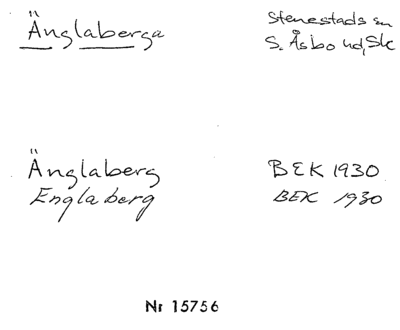 Änglaberga
Stenestads sn
S. Åsbo hd, Sk
Änglaberg BEK 1930
Englaberg BEK 1930
Nr 15756